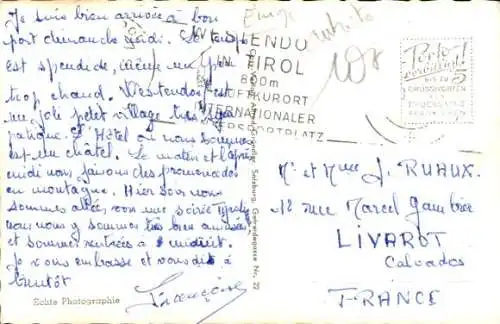 Je suis bien arrivée à bon
port dimanche midi. Le temps
est splendide, même un peu
trop chaud. Westendorf est
un joli petit village très
L'Hôtel où nous sommes
est un châlet. Le matin et l'après
midi nous faisons des promenades
en montagne. Hier soir nous
sommes allés voir une soirée
nous nous y sommes très bien amusés
et sommes rentrés à minuit.
Je vous embrasse et vous dis à
bientôt
Françoise
Echte Photographie
Salzburg,
Nr. 22
WESTENDORF
TIROL
800m
LUFTKURORT
INTERNATIONALER
WINTERSPORTPLATZ
108
Mr et Mme J. RUAUX.
12 rue Marcel Gambier
LIVAROT
Calvados
FRANCE